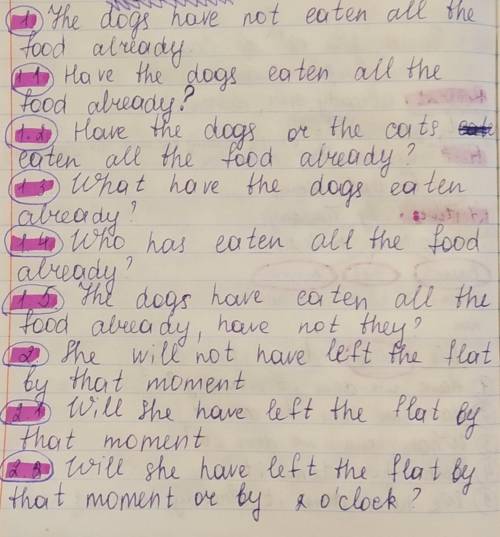 1 The dogs have not eaten all the
food already
1.1 Have the dogs eaten all the
food already?
1.2 Have the dogs or the cats
eaten all the food already?
1.3 What have the dogs eaten
already?
1.4 Who has eaten all the food
already?
1.5 The dogs have eaten all the
food already, have not they?
2 She will not have left the flat
by that moment
2.1 Will she have left the flat by
that moment
2.2 Will she have left the flat by
that moment or by 2 o'clock?